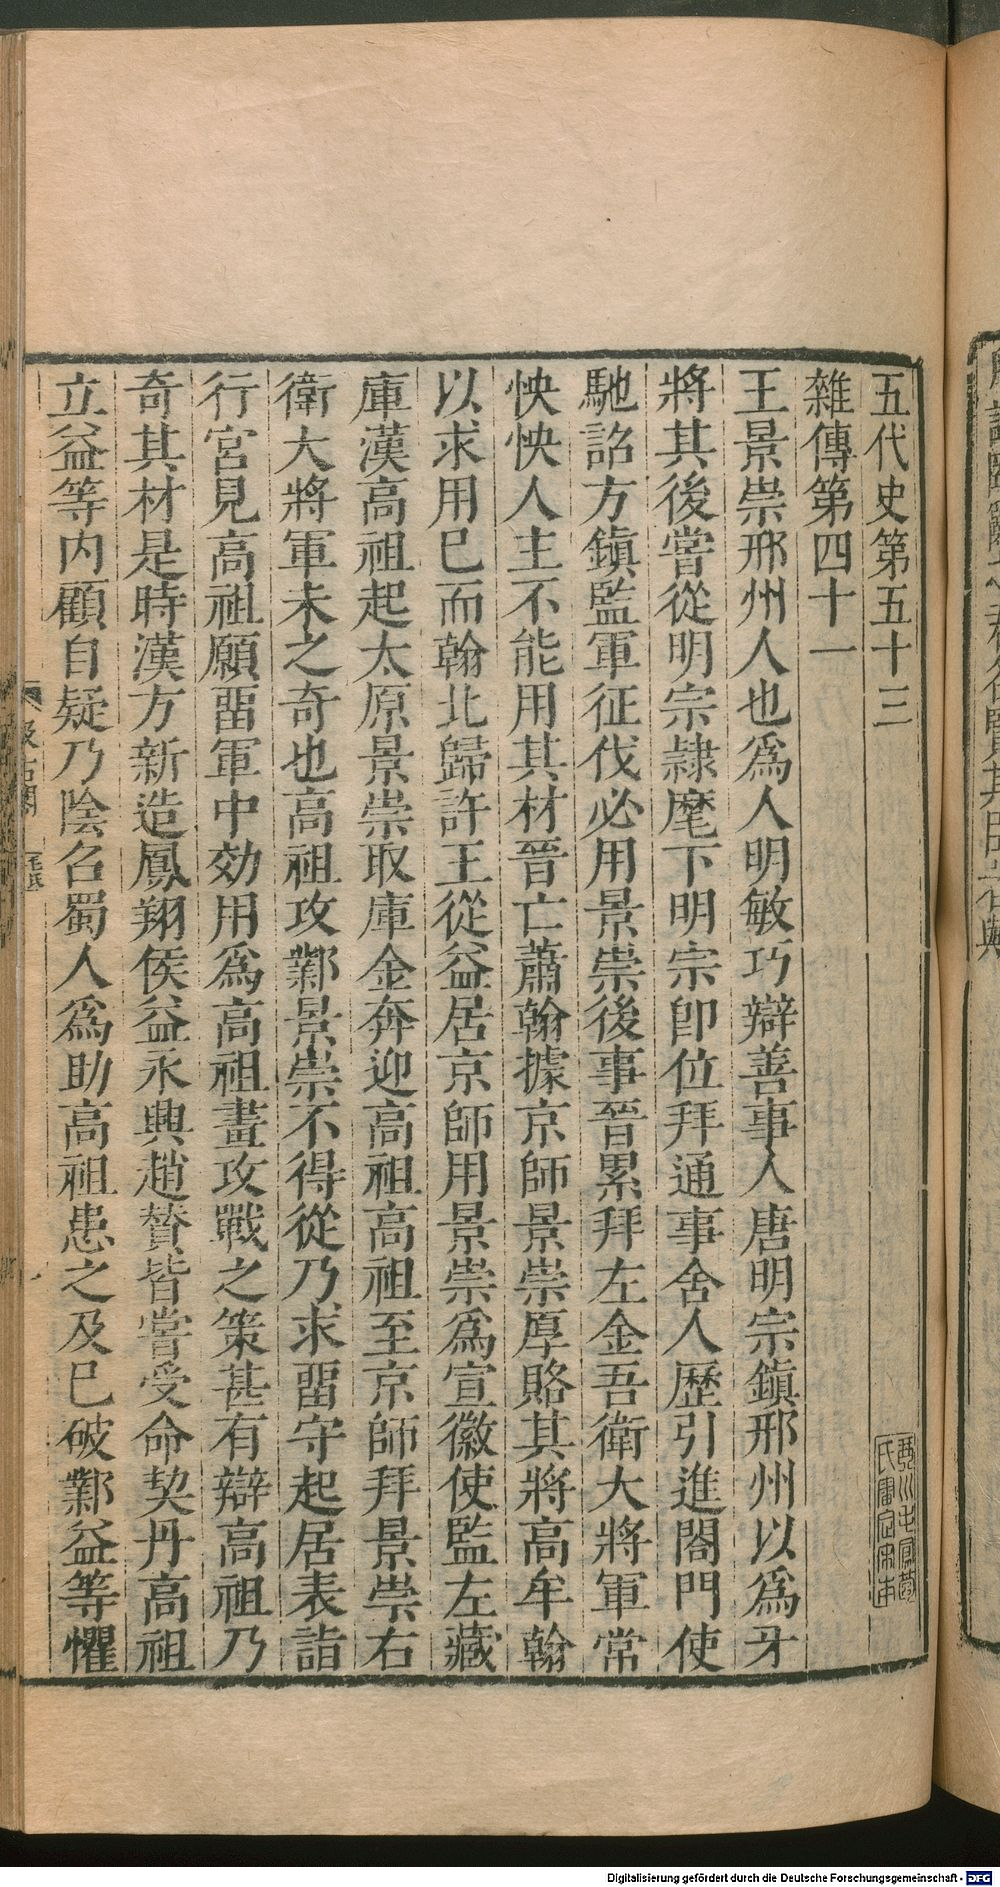 五代史第五十三
雜傳第四十一
王景崇邢州人也爲人明敏巧辯善事人唐明宗鎮邢州以爲牙
將其後嘗從明宗隷麾下明宗卽位拜通事舍人歷引進閤門使
馳詔方鎮監軍征伐必用景崇後事晉累拜左金吾衛大將軍常
怏怏人主不能用其材晉亡蕭翰據京師景崇厚賂其將高牟翰
以求用已而翰北歸許王從益居京師用景崇爲宣徽使監左藏
庫漢高祖起太原景崇取庫金奔迎高祖高祖至京師拜景崇右
衛大將軍未之奇也高祖攻鄴景崇不得從乃求畱守起居表詣
行宮見高祖願畱軍中効用爲高祖畫攻戰之策甚有辯高祖乃
奇其材是時漢方新造鳳翔侯益永興趙贊皆嘗受命契丹高祖
立益等内顧自疑乃陰召蜀人爲助高祖患之及已破鄴益等懼
汲古閣
毛氏
Digitalisierung gefördert durch die Deutsche Forschungsgemeinschaft - DFG